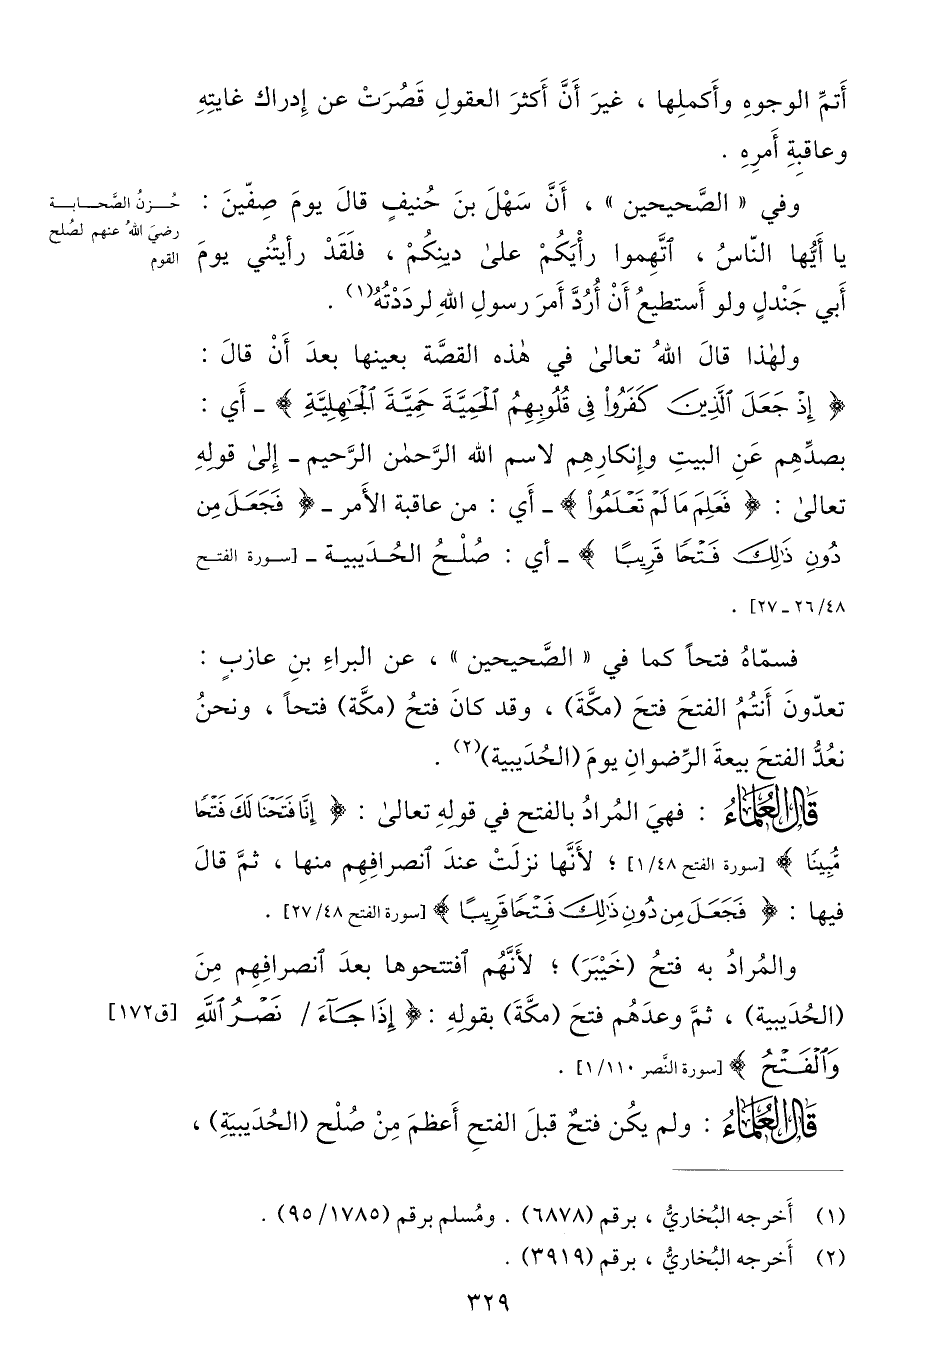 أَتمِّ الوجوهِ وأَكملِها ، غيرَ أَنَّ أَكثرَ العقولِ قَصُرَتْ عن إِدراك غايتِهِ
وعاقبةِ أَمرِهِ .
وفي « الصَّحيحين » ، أَنَّ سَهْلَ بنَ حُنيفٍ قالَ يومَ صِفّينَ :
حُـزنُ الصَّحـابـة
يا أَيُّها النّاسُ ، ٱتَّهِموا رأْيَكُمْ علىٰ دينِكُمْ ، فلَقَدْ رأيتُني يومَ
رضيَ اللهُ عنهم لصُلح
القوم
أَبي جَندلٍ ولو أَستطيعُ أَنْ أَرُدَّ أَمرَ رسولِ اللهِ لرددْتُهُ(١) .
ولهٰذا قالَ اللهُ تعالىٰ في هٰذه القصَّة بعينها بعدَ أَنْ قالَ :
﴿ إِذْ جَعَلَ ٱلَّذِينَ كَفَرُوا۟ فِى قُلُوبِهِمُ ٱلْحَمِيَّةَ حَمِيَّةَ ٱلْجَٰهِلِيَّةِ ﴾ ـ أَي :
بصدِّهِم عَنِ البيتِ وإِنكارِهِم لاسم الله الرَّحمٰن الرَّحيم ـ إِلىٰ قولِهِ
تعالىٰ : ﴿ فَعَلِمَ مَا لَمْ تَعْلَمُوا۟ ﴾ ـ أَي : من عاقبة الأَمر ـ ﴿ فَجَعَلَ مِن
دُونِ ذَٰلِكَ فَتْحًا قَرِيبًا ﴾ ـ أَي : صُلْحُ الحُدَيبية ـ [سورة الفتح
٤٨/ ٢٦ ـ ٢٧] .
فسمّاهُ فتحاً كما في « الصَّحيحين » ، عن البراءِ بنِ عازبٍ :
تعدّونَ أَنتُمُ الفتحَ فتحَ (مكَّةَ) ، وقد كانَ فتحُ (مكَّة) فتحاً ، ونحنُ
نعُدُّ الفتحَ بيعةَ الرِّضوانِ يومَ (الحُدَيبية)(٢) .
قَالَ العُلَمَاءُ : فهيَ المُرادُ بالفتح في قولِهِ تعالىٰ : ﴿ إِنَّا فَتَحْنَا لَكَ فَتْحًا
مُّبِينًا ﴾ [سورة الفتح ٤٨/ ١] ؛ لأَنَّها نزلَتْ عندَ ٱنصرافِهِم منها ، ثمَّ قالَ
فيها : ﴿ فَجَعَلَ مِن دُونِ ذَٰلِكَ فَتْحًا قَرِيبًا ﴾ [سورة الفتح ٤٨/ ٢٧] .
والمُرادُ به فتحُ (خَيْبَرَ) ؛ لأَنَّهُم ٱفتتحوها بعدَ ٱنصرافِهِم مِنَ
(الحُدَيبية) ، ثمَّ وعدَهُم فتحَ (مكَّةَ) بقولِهِ : ﴿ إِذَا جَآءَ / نَصْرُ ٱللَّهِ [ق١٧٢]
وَٱلْفَتْحُ ﴾ [سورة النَّصر ١١٠/ ١] .
قَالَ العُلَمَاءُ : ولم يكُن فتحٌ قبلَ الفتحِ أَعظمَ مِنْ صُلْح (الحُدَيبيَةِ) ،
(١) أَخرجه البُخاريُّ ، برقم (٦٨٧٨) . ومُسلم برقم (١٧٨٥/ ٩٥) .
(٢) أَخرجه البُخاريُّ ، برقم (٣٩١٩) .
٣٢٩